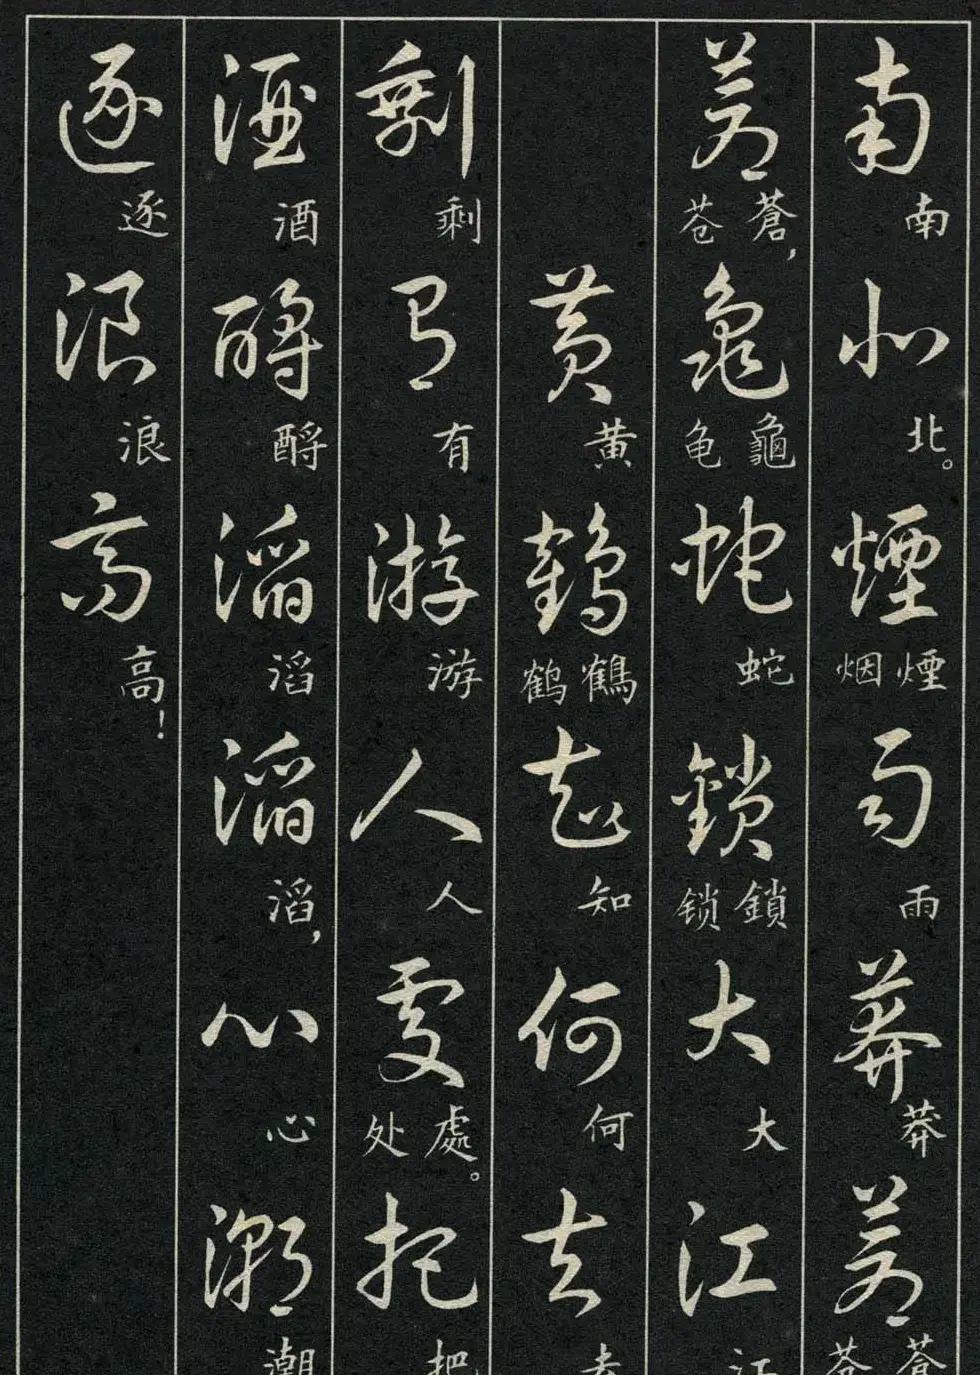 南北煙雨莽蒼
南 北。 煙烟 雨 莽 蒼苍
蒼龜蛇鎖大江
蒼,苍 龜龟 蛇 鎖锁 大 江
黄鶴知何去
黄 鶴鹤 知 何 去
剩有游人處把
剩 有 游 人 處。处 把
酒酹滔滔心潮
酒 酹 滔 滔, 心 潮
逐浪高
逐 浪 高!